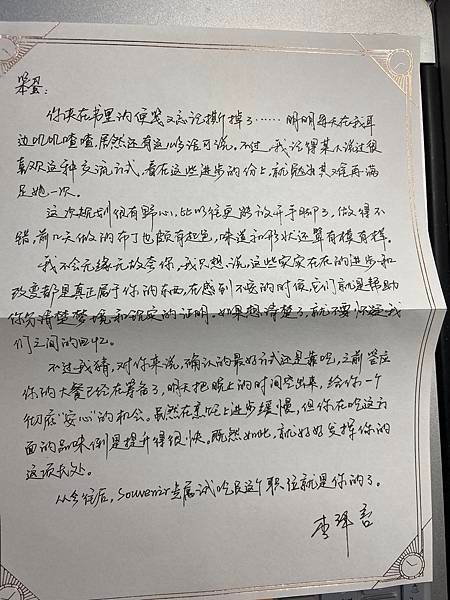 笨蛋：
你夹在书里的便笺又忘记撕掉了……明明每天在我耳
边叽叽喳喳，居然还有这么多话可说。不过，我记得某人说过很
喜欢这种交流方式，看在这些进步的份上，就勉为其难再满
足她一次。
这次规划很有野心，比以往更游刃有手脚了，做得不
错，前几天做的布丁也颇有起色，味道和形状还算有模有样。
我不会无缘无故夸你，我只想说，这些实实在在的进步和
改变都是真正属于你的东西，在感到不安的时候，它们就是帮助
你分清楚梦境和现实的证明。如果想清楚了，就不要怀疑我
们之间的回忆。
不过我猜，对你来说，确认的最好方式还是靠吃，之前答应
你的大餐已经在筹备了，明天把晚上的时间空出来，给你一个
彻底“安心”的机会。虽然在烹饪上进步缓慢，但你在吃这方
面的品味倒是提升得很快。既然如此，就好好发挥你的
这项长处。
从今往后，Souvenir专属试吃员这个职位就是你的了。
李泽言